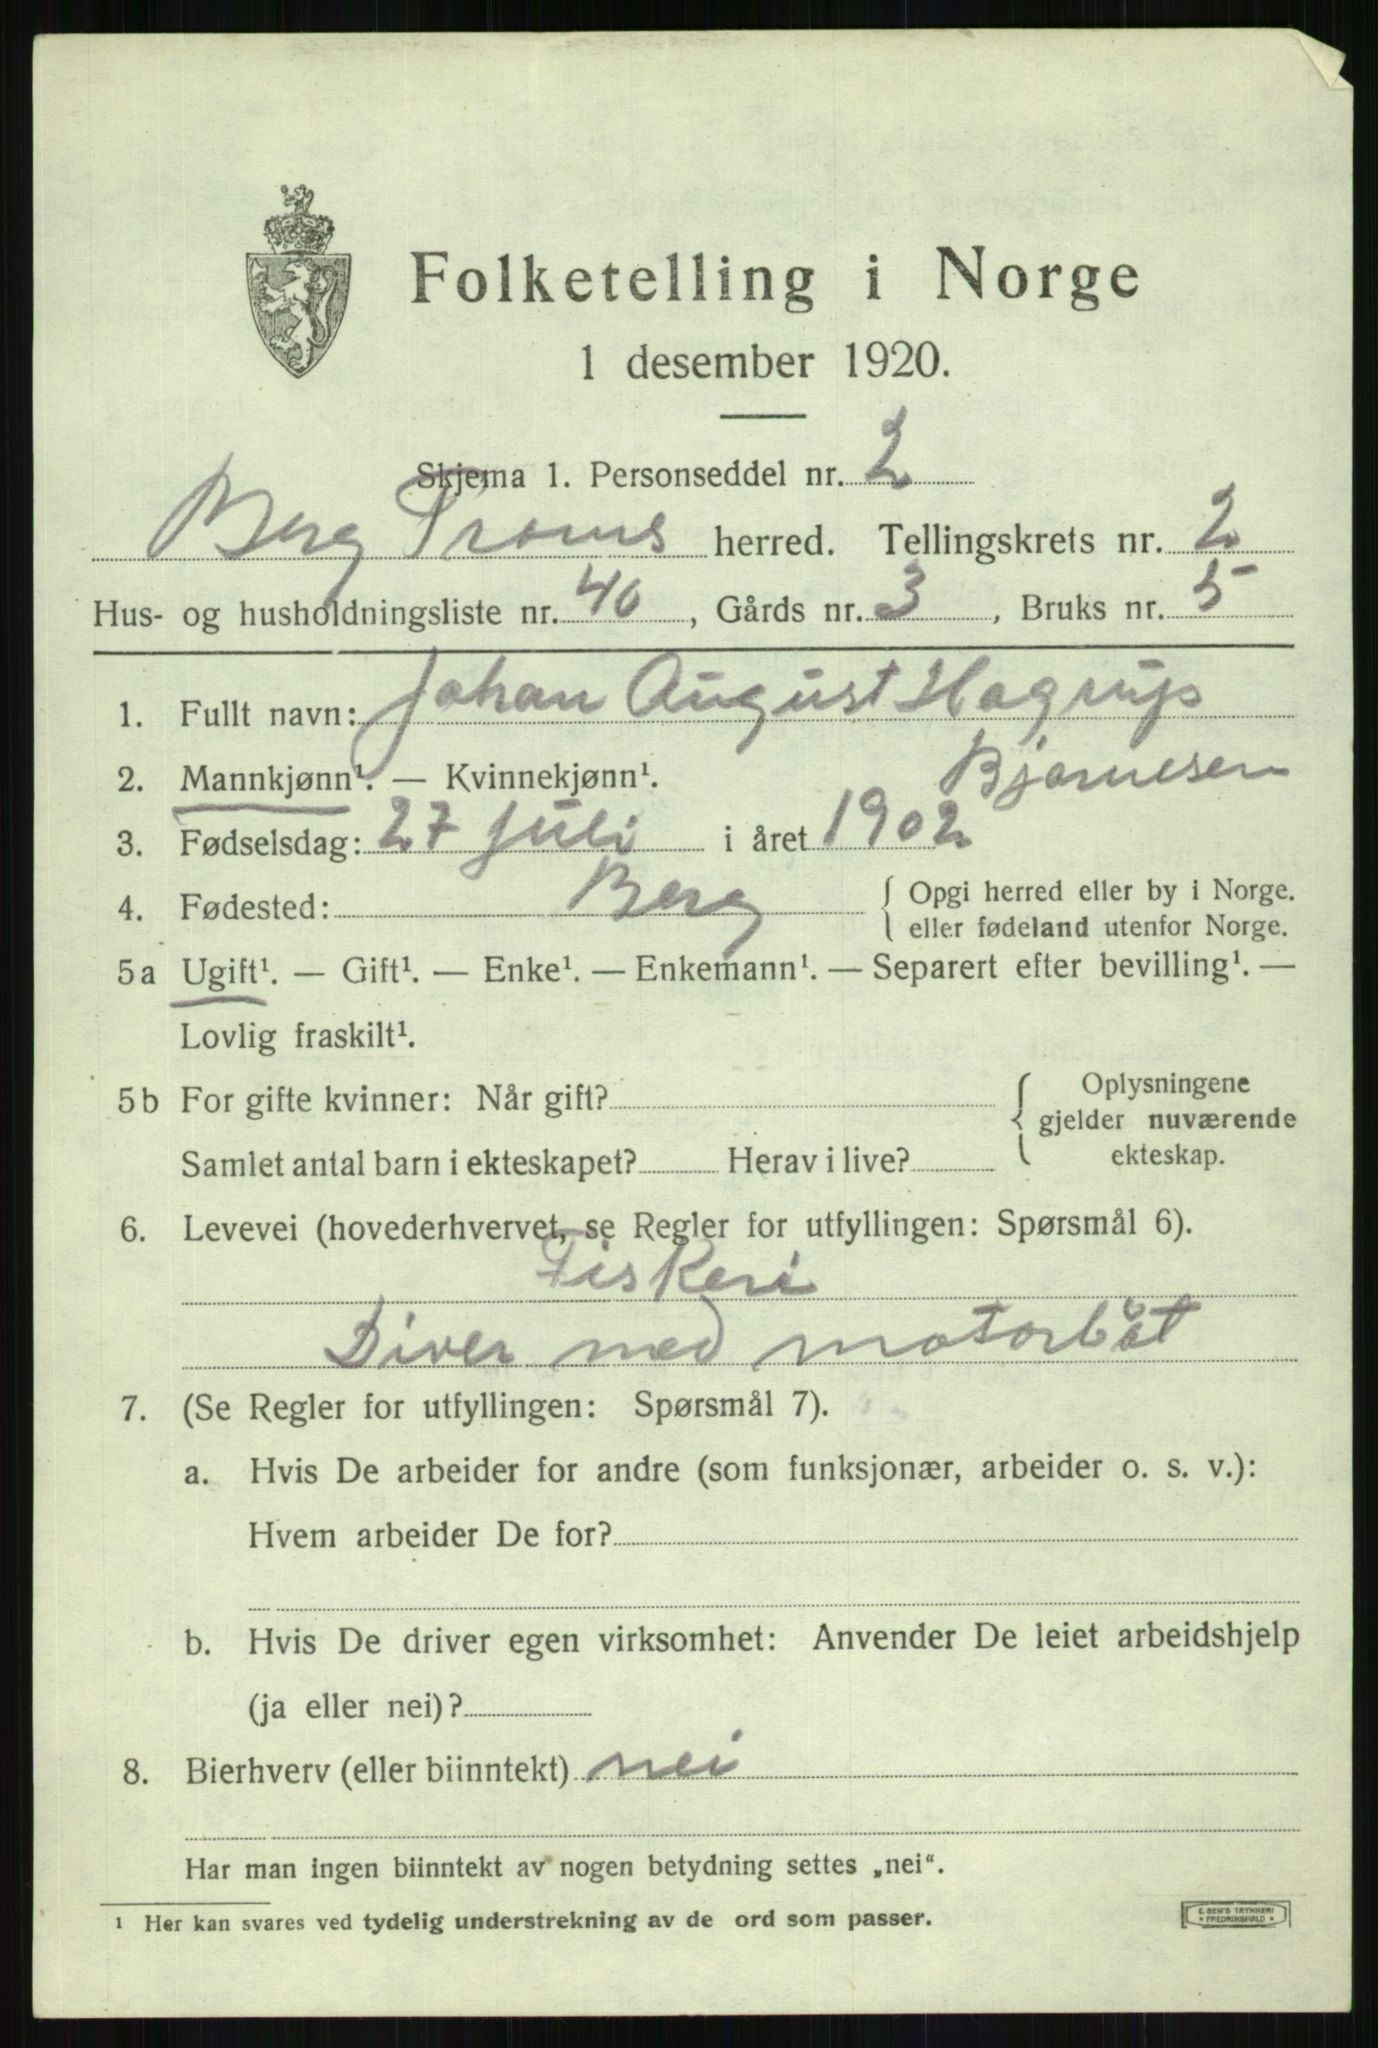 Folketelling i Norge
1 desember 1920.
Skjema 1. Personseddel nr. 2
Berg Troms herred. Tellingskrets nr. 2
Hus- og husholdningsliste nr. 40, Gårds nr. 3, Bruks nr. 5
1. Fullt navn: Johan August Hagrup
Bjarnesen
2. Mannkjønn¹. — Kvinnekjønn¹.
3. Fødselsdag: 27 juli i året 1902
4. Fødested: Berg { Opgi herred eller by i Norge.
eller fødeland utenfor Norge.
5a Ugift¹. — Gift¹. — Enke¹. — Enkemann¹. — Separert efter bevilling¹. —
Lovlig fraskilt¹.
5b For gifte kvinner: Når gift? { Oplysningene
gjelder nuværende
Samlet antal barn i ekteskapet? Herav i live? ekteskap.
6. Levevei (hovederhvervet, se Regler for utfyllingen: Spørsmål 6).
Fiskeri
Diver med motorbåt
7. (Se Regler for utfyllingen: Spørsmål 7).
a. Hvis De arbeider for andre (som funksjonær, arbeider o. s. v.):
Hvem arbeider De for?
b. Hvis De driver egen virksomhet: Anvender De leiet arbeidshjelp
(ja eller nei)?
8. Bierhverv (eller biinntekt) nei
Har man ingen biinntekt av nogen betydning settes „nei“.
¹ Her kan svares ved tydelig understrekning av de ord som passer.
E. SEM'S TRYKKERI
* FREDRIKSHALD *